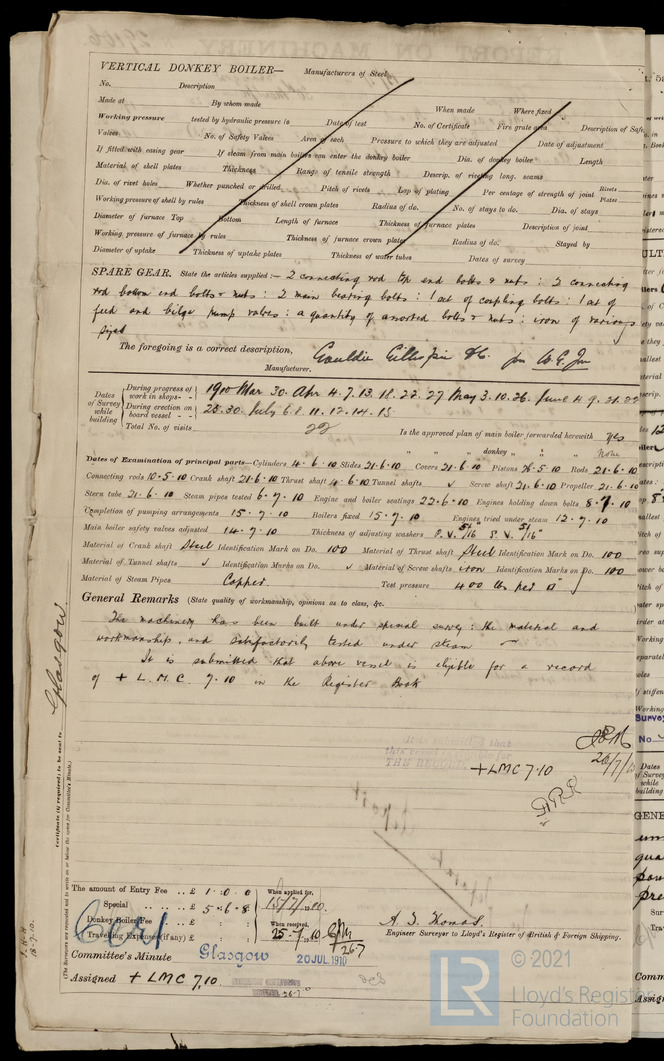 VERTICAL DONKEY BOILER— Manufacturers of Steel
No. Description
Made at By whom made When made Where fixed
Working pressure tested by hydraulic pressure to Date of test No. of Certificate Fire grate area Description of Safety
Valves No. of Safety Valves Area of each Pressure to which they are adjusted Date of adjustment
If fitted with easing gear If steam from main boilers can enter the donkey boiler Dia. of donkey boiler Length
Material of shell plates Thickness Range of tensile strength Descrip. of riveting long. seams
Dia. of rivet holes Whether punched or drilled Pitch of rivets Lap of plating Per centage of strength of joint Rivets Plates
Working pressure of shell by rules Thickness of shell crown plates Radius of do. No. of stays to do. Dia. of stays
Diameter of furnace Top Bottom Length of furnace Thickness of furnace plates Description of joint
Working pressure of furnace by rules Thickness of furnace crown plates Radius of do. Stayed by
Diameter of uptake Thickness of uptake plates Thickness of water tubes Dates of survey
SPARE GEAR. State the articles supplied:— 2 connecting rod top end bolts & nuts : 2 connecting
rod bottom end bolts & nuts : 2 main bearing bolts : 1 set of coupling bolts : 1 set of
feed and bilge pump valves : a quantity of assorted bolts & nuts : iron of various
sizes
The foregoing is a correct description,
Gauldie Gillespie & Co.
Manufacturer.
Dates of Survey while building
During progress of work in shops - - 1910 Mar 30. Apr 4. 7. 13. 18. 22. 27 May 3. 10. 26. June 4. 9. 21. 22
During erection on board vessel - - 28. 30. July 6. 8. 11. 12. 14. 15
Total No. of visits 22 Is the approved plan of main boiler forwarded herewith Yes
" " " donkey " " " None
Dates of Examination of principal parts—Cylinders 4.6.10 Slides 21.6.10 Covers 21.6.10 Pistons 26.5.10 Rods 21.6.10
Connecting rods 10.5.10 Crank shaft 21.6.10 Thrust shaft 4.6.10 Tunnel shafts ✓ Screw shaft 21.6.10 Propeller 21.6.10
Stern tube 21.6.10 Steam pipes tested 6.7.10 Engine and boiler seatings 22.6.10 Engines holding down bolts 8.7.10
Completion of pumping arrangements 15.7.10 Boilers fixed 15.7.10 Engines tried under steam 12.7.10
Main boiler safety valves adjusted 14.7.10 Thickness of adjusting washers P.V. 5/16 S.V. 5/16"
Material of Crank shaft Steel Identification Mark on Do. 100 Material of Thrust shaft Steel Identification Mark on Do. 100
Material of Tunnel shafts ✓ Identification Marks on Do. ✓ Material of Screw shafts iron Identification Marks on Do. 100
Material of Steam Pipes Copper. Test pressure 400 lbs per □"
General Remarks (State quality of workmanship, opinions as to class, &c.
The machinery has been built under special survey : the material and
workmanship, and satisfactorily tested under steam
It is submitted that above vessel is eligible for a record
of + L.M.C. 7.10 in the Register Book
+LMC 7.10
Glasgow
Certificate (if required) to be sent to
(The Surveyors are requested not to write on or below the space for Committee's Minute.)
The amount of Entry Fee .. £ 1 : 0 : 0 When applied for,
Special .. .. £ 5 : 6 : 8 15/7/10
Donkey Boiler Fee .. £ : : When received,
Travelling Expenses (if any) £ : : 25.7.10
26.7
A. T. Thomas.
Engineer Surveyor to Lloyd's Register of British & Foreign Shipping.
Committee's Minute Glasgow 20 JUL. 1910
Assigned + LMC 7.10
LR © 2021
Lloyd's Register
Foundation